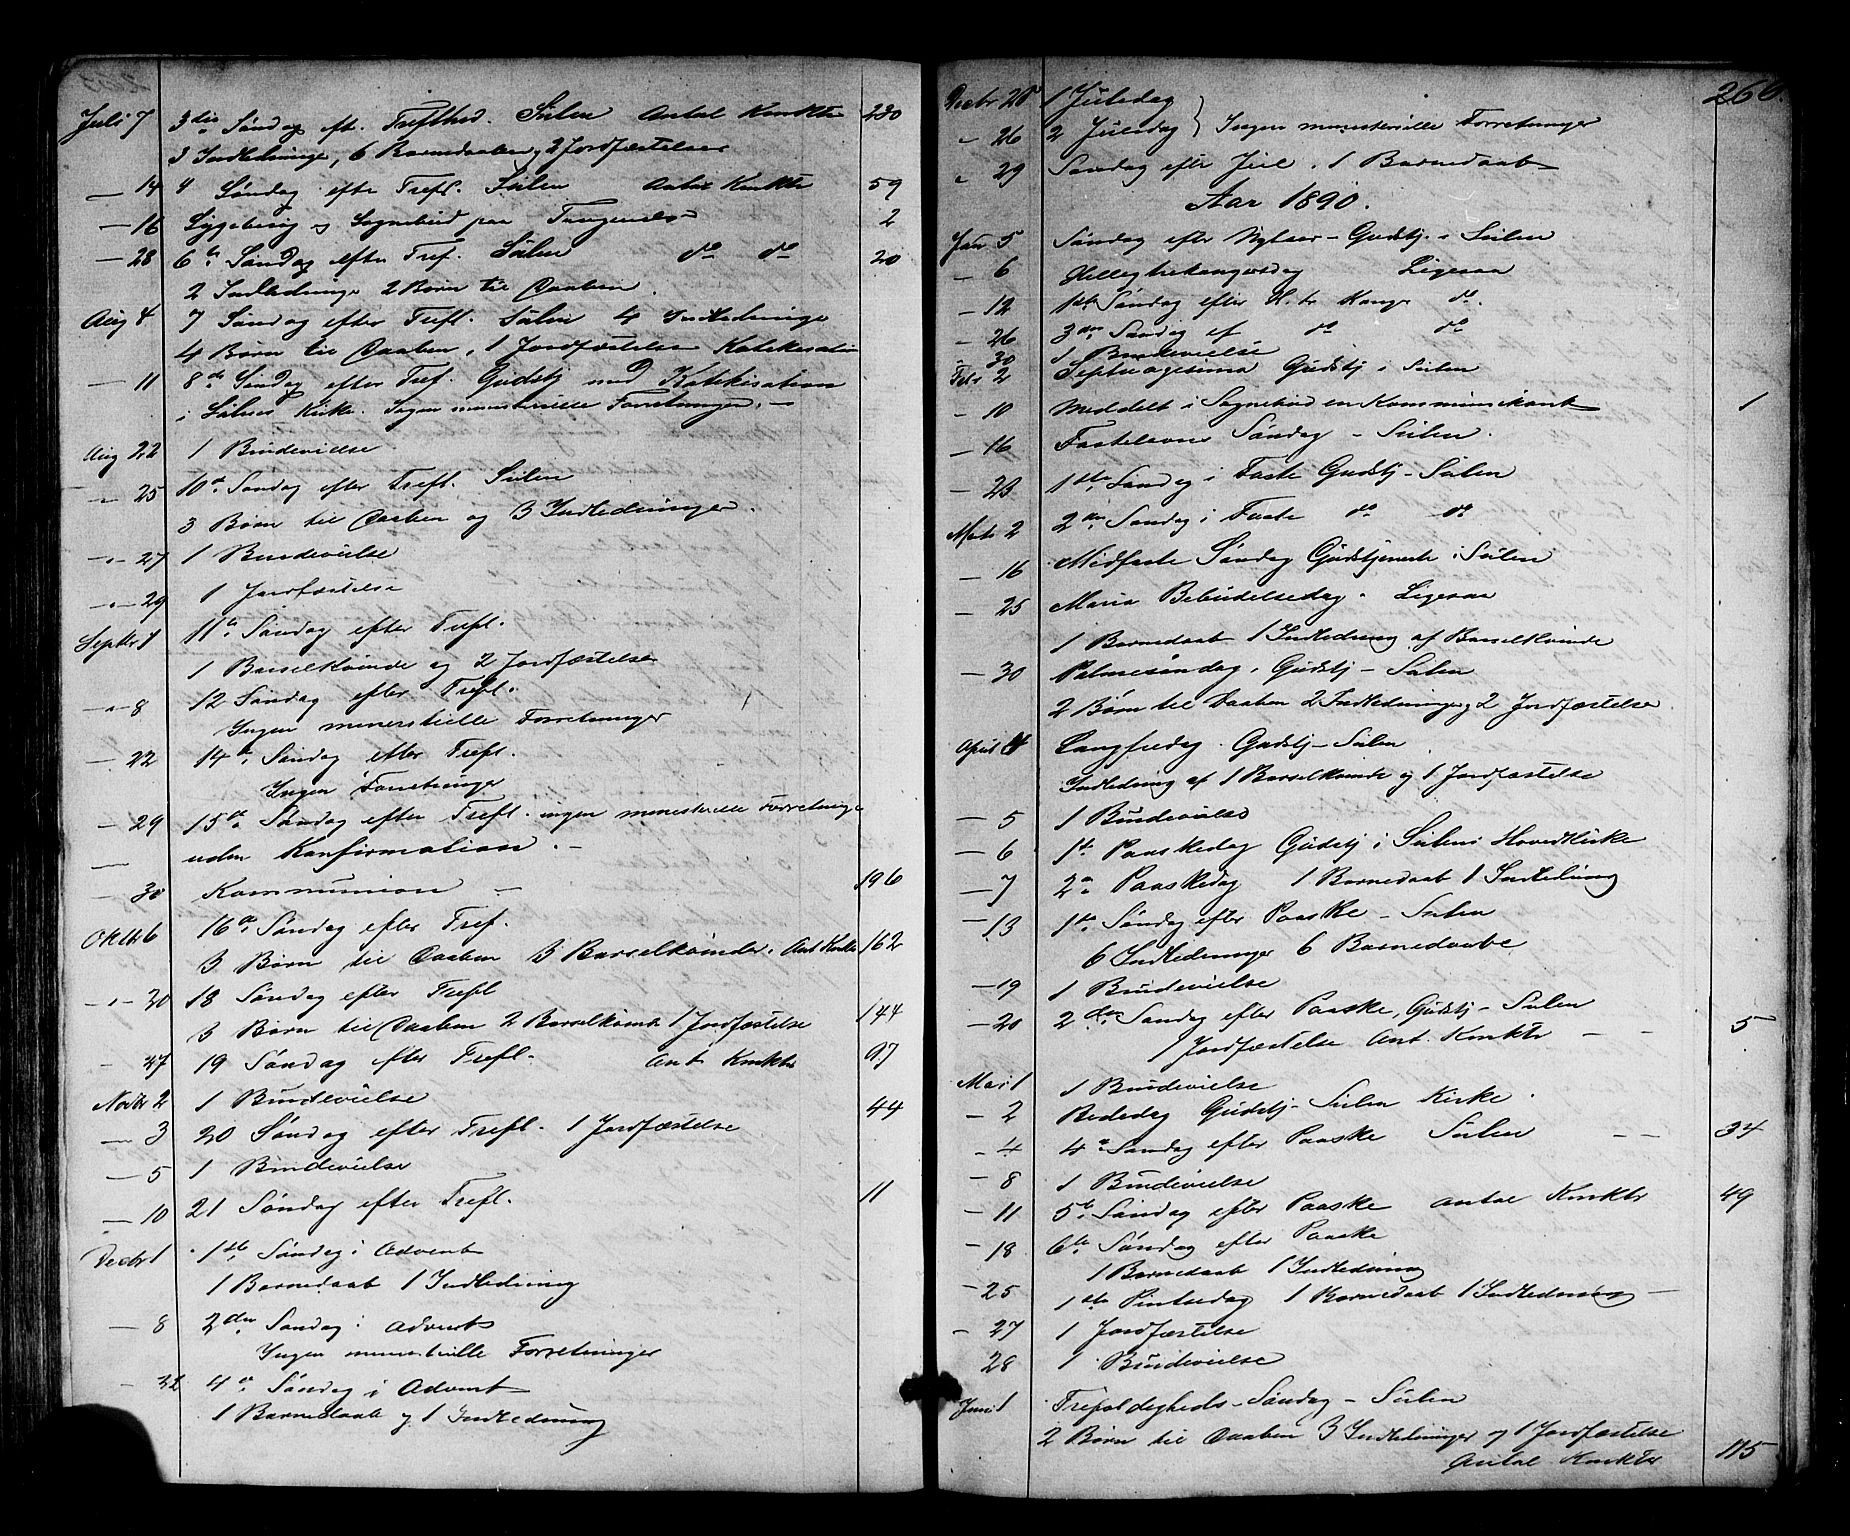 Juli 7 3die Søndag eft. Trefthed. Sulen Antal Knkte 230
3 Indledninge, 6 Barnedaaben, 2 Jordfæstelser
— 14 4 Søndag efte Trefl. Sulen Antal Knkte 59
— 16 Sygebesøg og Sognebud paa 2
— 28 6te Søndag efter Tref. Sulen do do 20
2 Indledninge 2 Børn til Daaben.
Aug 4 7 Søndag efter Trefl. Sulen 4 Indledninge
4 Børn til Daaben, 1 Jordfæstelse Katekisation
— 11 8de Søndag efter Tref. Gudstj med Katekisation
i Sulens Kirke. Ingen ministerielle Forretninger. —
Aug 22 1 Brudevielse
— 25 10de Søndag efter Trefl. Sulen
3 Børn til Daaben og 3 Indledninger.
— 27 1 Brudevielse
— 29 1 Jordfæstelse
Septbr 1 11te Søndag efter Trefl.
1 Barselkvinde og 2 Jordfæstelse
— 8 12 Søndag efter Trefl.
Ingen minerstielle Forretninger
— 22 14de Søndag efter Trefl.
Ingen Forretninger
— 29 15de Søndag efter Trefl. ingen ministerielle Forretninge
uden Konfirmation. —
— 30 Kommunion — 196
Oktbr 6 16de Søndag efter Tref.
3 Børn til Daaben 3 Barselkvinder. Ant Knkte 162
— 20 18 Søndag efter Trefl
3 Børn til Daaben 2 Barselkvind 1 Jordfæstelse 144
— 27 19 Søndag efter Trefl. Ant Knkte 97
Novbr 2 1 Brudevielse
— 3 20 Søndag efter Trefl. 1 Jordfæstelse 44
— 5 1 Brudevielse
— 10 21 Søndag efter Trefl. 11
Decbr 1 1ste Søndag i Advent
1 Barnedaab 1 Indledning
— 8 2den Søndag i Advent
Ingen minestrielle Forretninger
— 22 4de Søndag i Advent
1 Barnedaab og 1 Indledning
260.
Decbr 25 1 Juledag
— 26 2 Juledag } Ingen ministerielle Forretninger
— 29 Søndag efter Jul. 1 Barnedaab
Aar 1890.
Jan 5 Søndag efter Nytaar — Gudstj. i Sulen
— 6 Helligtrekongersdag Ligesaa
— 12 1ste Søndag efter H. tr Konge do.
— 26 3die Søndag ef do do
30 1 Brudevielse
Febr 2 Septuagesima Gudstj i Sulen
— 10 Meddelt i Sognebud en Kommunikant 1
— 16 Fastelavns Søndag — Sulen.
— 23 1ste Søndag i Faste Gudstj — Sulen
Marts 2 2den Søndag i Faste do do
— 16 Midfaste Søndag Gudstjeneste i Sulen
— 25 Maria Bebudelsedag. Ligesaa
1 Barnedaab 1 Indledning af Barselkvinde
— 30 Palmesøndag. Gudstj — Sulen
2 Børn til Daaben 2 Indledninge, 2 Jordfæstelse
April 4 Langfredag. Gudstj — Sulen.
Indledning af 1 Barselkvinde og 1 Jordfæstelse
— 5 1 Brudevielse
— 6 1ste Paaskedag Gudstj i Sulens Hovedkirke
— 7 2n Paaskedag 1 Barnedaab 1 Indledning
— 13 1ste Søndag efter Paaske — Sulen
6 Indledninger 6 Barnedaabe
— 19 1 Brudevielse
— 20 2den Søndag efter Paaske, Gudstj — Sulen
1 Jordfæstelse Ant. Knktr — — 5
Mai 1 1 Brudevielse
— 2 Bededag Gudstj — Sulen Kirke.
— 4 4de Søndag efter Paaske Sulen — — 34
— 8 1 Brudevielse
— 11 5te Søndag efter Paaske Antal Knktr 49
— 18 6te Søndag efter Paaske
1 Barnedaab 1 Indledning
— 25 1ste Pintsedag 1 Barnedaab 1 Indledning —
— 27 1 Jordfæstelse
28 1 Brudevielse
Juni 1 Trefoldigheds-Søndag — Sulen
2 Børn til Daaben 3 Indledninger og 1 Jordfæstelse
Antal Knkter 115